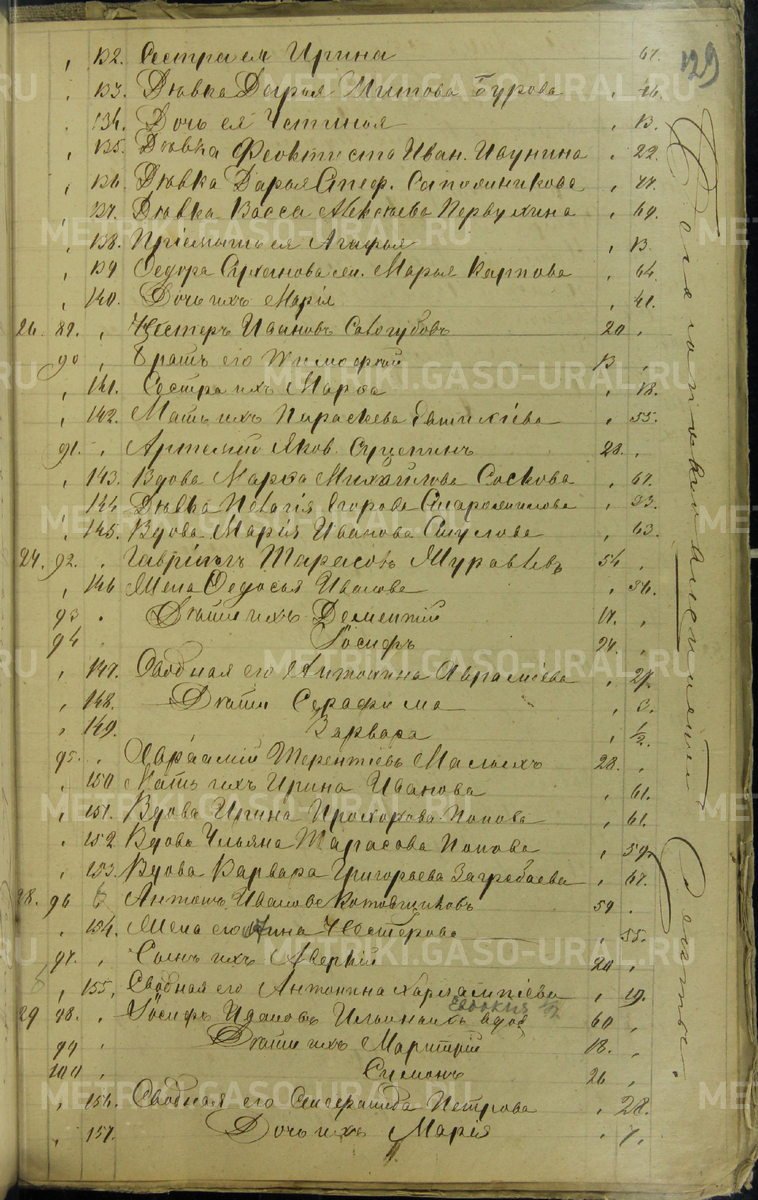 129
132. Сестра ея Ирина 67.
133. Дѣвка Дарья Титова Бурова 46.
134. Дочь ея Устинья 13.
135. Дѣвка Феоктиста Иван. Ивунина 22.
136. Дѣвка Дарья Стеф. 44.
137. Дѣвка Васса Алексѣева Первухина 69.
138. Пріемышъ ея Агафья 13.
139 Федора жен. Марья Карпова 64.
140. Дочь ихъ Марія 41.
26. 89. Нестеръ Ивановъ 20
90 Братъ его Тимофей 13
141. Сестра ихъ Марфа 18.
142. Мать ихъ Параскева 55.
91. Артемий Яков. 28.
143. Вдова Марфа Михайлова Соскова 67.
144 Дѣвка Пелагія Егорова 33.
145. Вдова Марія Иванова 63.
27. 92. Гавріилъ Тарасовъ Муравьевъ 54
146 Жена Федосья Иванова 56.
93 Дѣти ихъ Дементій 17.
94 Іосифъ 24.
147. Сводная его Антонина Авраміева 27.
148. Дѣти Серафима 3.
149. Варвара 1/2.
95. Авраамій Терентьевъ Малыхъ 28.
150 Мать ихъ Ирина Иванова 61.
151. Вдова Ирина Прохорова Попова 61.
152 Вдова Ульяна Тарасова Попова 59.
153. Вдова Варвара Григорьева Загребаева 67.
28. 96 Антонъ Ивановъ Котовщиковъ 59
154. Жена его Анна Нестерова 55.
97. Сынъ ихъ Аверкій 20
155. Сводная его Антонина Харлампіева 19.
Евдокия 1/2
29 98. Іосифъ Ильиныхъ вдов 60
99 Дѣти ихъ 18.
100 Симонъ 26
156. Сводная его Петрова 28.
157. Дочь ихъ Марія 7.
секты.